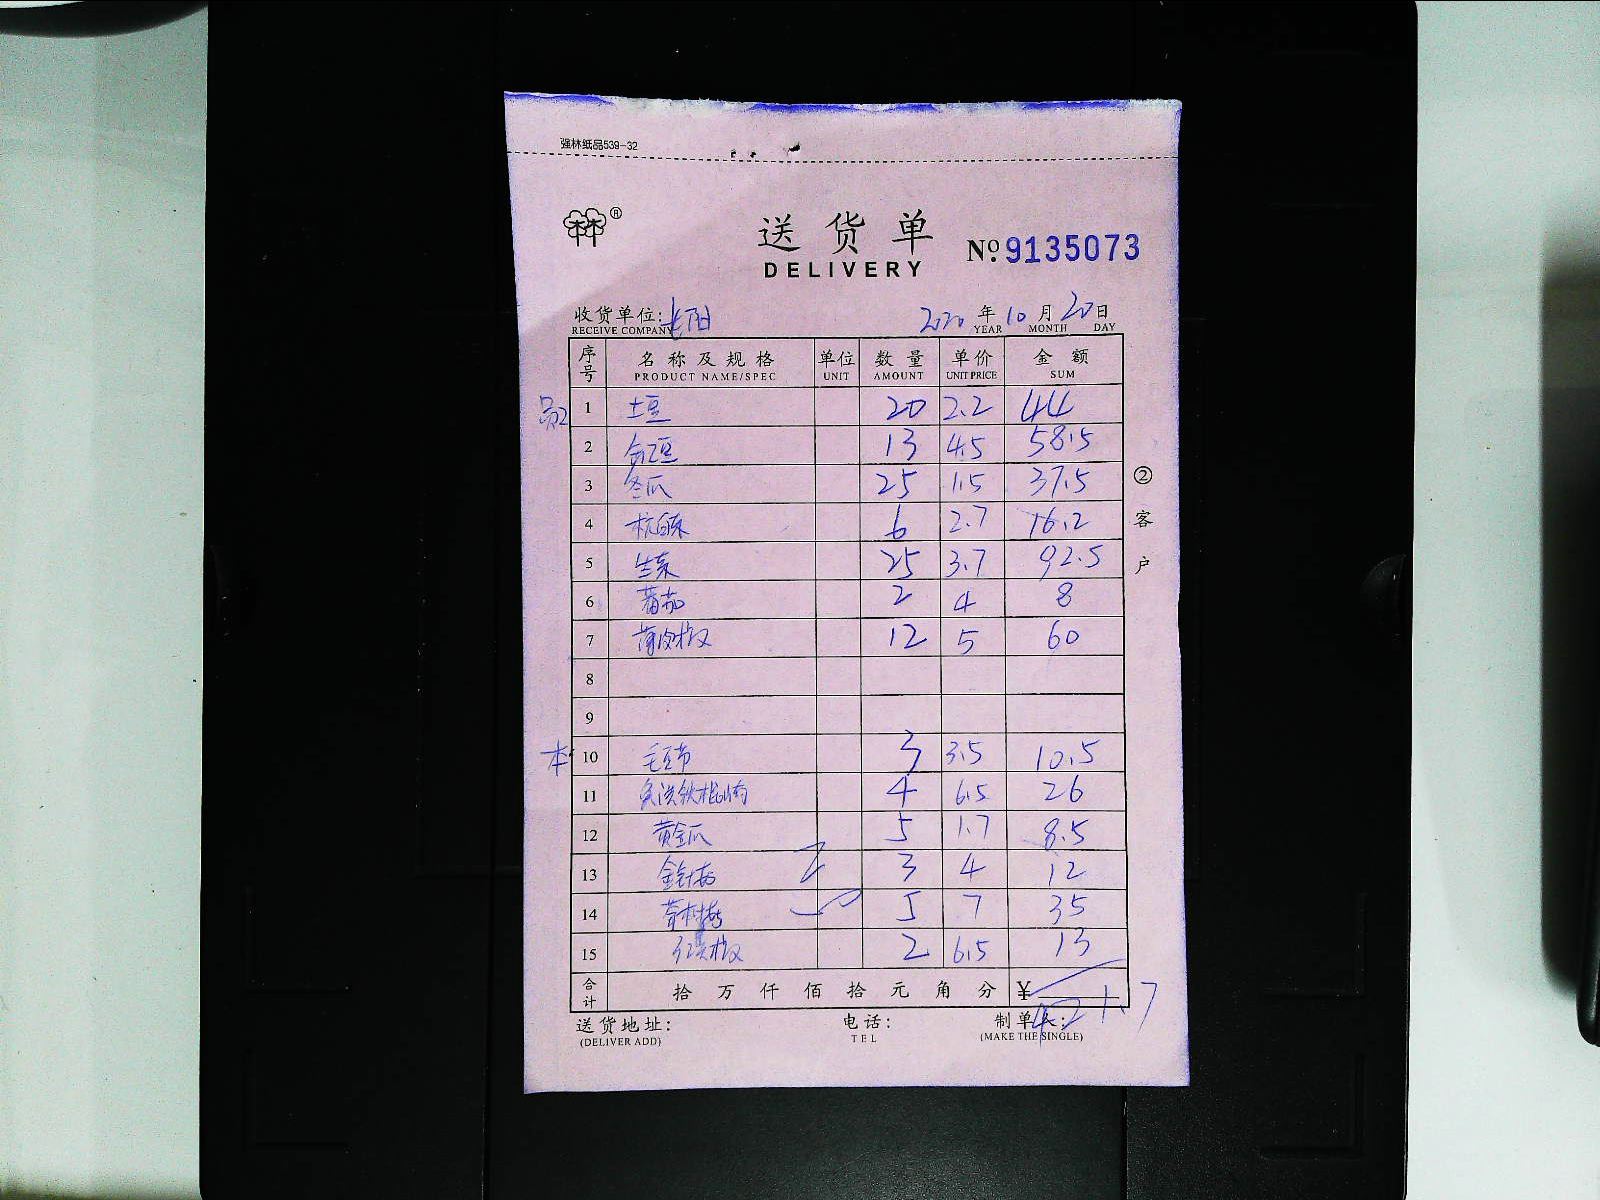 强林纸品539-32
林 ®
送货单
DELIVERY
№ 9135073
收货单位: 长阳 2020 年 10 月 20 日
RECEIVE COMPANY YEAR MONTH DAY
序号 名称及规格 单位 数量 单价 金额
PRODUCT NAME/SPEC UNIT AMOUNT UNIT PRICE SUM
1 土豆 20 2.2 44
2 豆 13 4.5 58.5
3 冬瓜 25 1.5 37.5
4 杭白菜 6 2.7 16.2
5 生菜 25 3.7 92.5
6 蕃茄 2 4 8
7 薄皮椒 12 5 60
8
9
本 10 毛豆节 3 3.5 10.5
11 铁棍山药 4 6.5 26
12 黄金瓜 5 1.7 8.5
13 金针菇 2 3 4 12
14 茶树菇 5 7 35
15 红尖椒 2 6.5 13
合计 拾 万 仟 佰 拾 元 角 分 ¥ 421.7
送货地址: 电话: 制单人:
(DELIVER ADD) TEL (MAKE THE SINGLE)
②客户